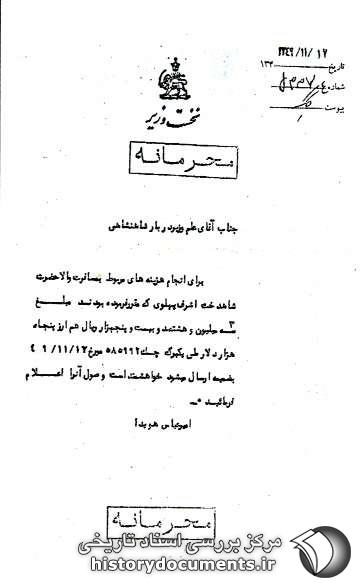 ۱۳۴۹/۱۱/۱۲
تاریخ ۱۳۴
شماره
پیوست
نخست وزیر
محرمانه
جناب آقای علم وزیر دربار شاهنشاهی
برای انجام هزینه های مربوط بمسافرت والاحضرت
شاهدخت اشرف پهلوی که مقرر فرموده بودند مبلغ
۳ میلیون و هشتصد و بیست و پنجهزار ریال هم ارز پنجاه
هزار دلار طی یکبرگ چک ۵۸۵۹۹۲ مورخ ۴۹/۱۱/۱۲
بضمیمه ارسال میشود خواهشمند است وصول آنرا اعلام
فرمائید
امیرعباس هویدا
محرمانه
مرکز بررسی اسناد تاریخی
historydocuments.ir